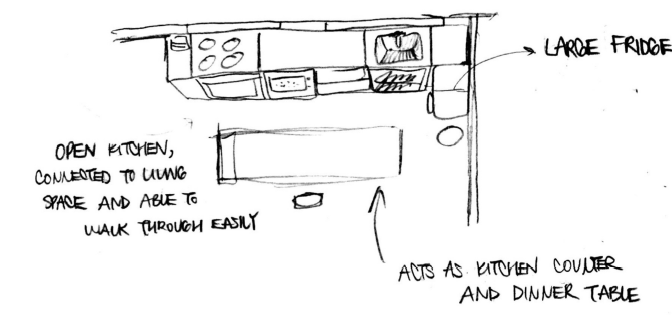 LARGE FRIDGE
OPEN KITCHEN,
CONNECTED TO LIVING
SPACE AND ABLE TO
WALK THROUGH EASILY
ACTS AS KITCHEN COUNTER
AND DINNER TABLE